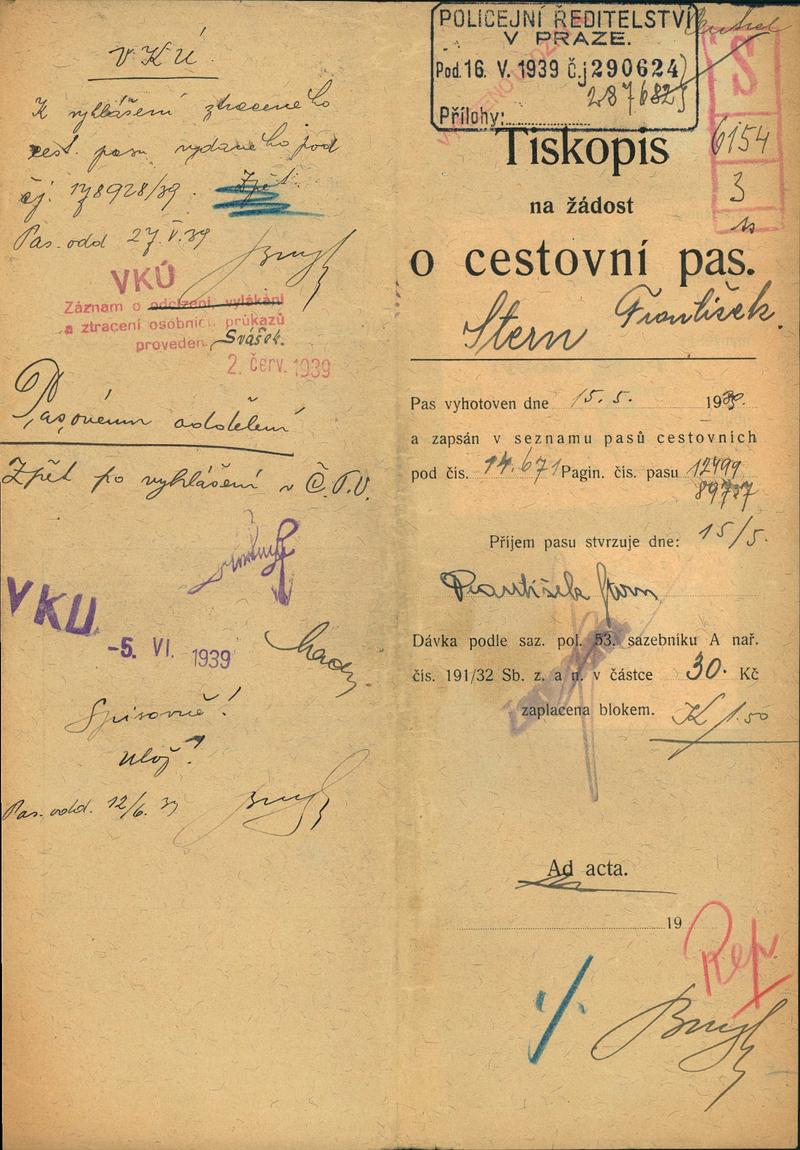 VKÚ.
K vyhlášení ztraceného
cest. pasu vydaného pod
čj. 178928/39. Zpět.
Pas. odd 27.V.39
VKÚ
Záznam o odcizení, vylákání
a ztracení osobních průkazů
proveden. Svášek.
2. červ. 1939
Pasovému oddělení
Zpět po vyhlášení v Č.P.V.
VKU
-5. VI. 1939
Spisovně!
Ulož!
Pas. odd. 12/6. 39
POLICEJNÍ ŘEDITELSTVÍ
V PRAZE.
Pod. 16. V. 1939 č.j 290624
287682
Přílohy:
S
6154
3
Tiskopis
na žádost
o cestovní pas.
Stern František.
Pas vyhotoven dne 15.5. 1939.
a zapsán v seznamu pasů cestovních
pod čís. 14.671 Pagin. čís. pasu 12499
89727
Příjem pasu stvrzuje dne: 15/5.
František Stern
Dávka podle saz. pol. 53. sazebníku A nař.
čís. 191/32 Sb. z. a n. v částce 30. Kč
zaplacena blokem. K 1.50
Ad acta.
19
Rep